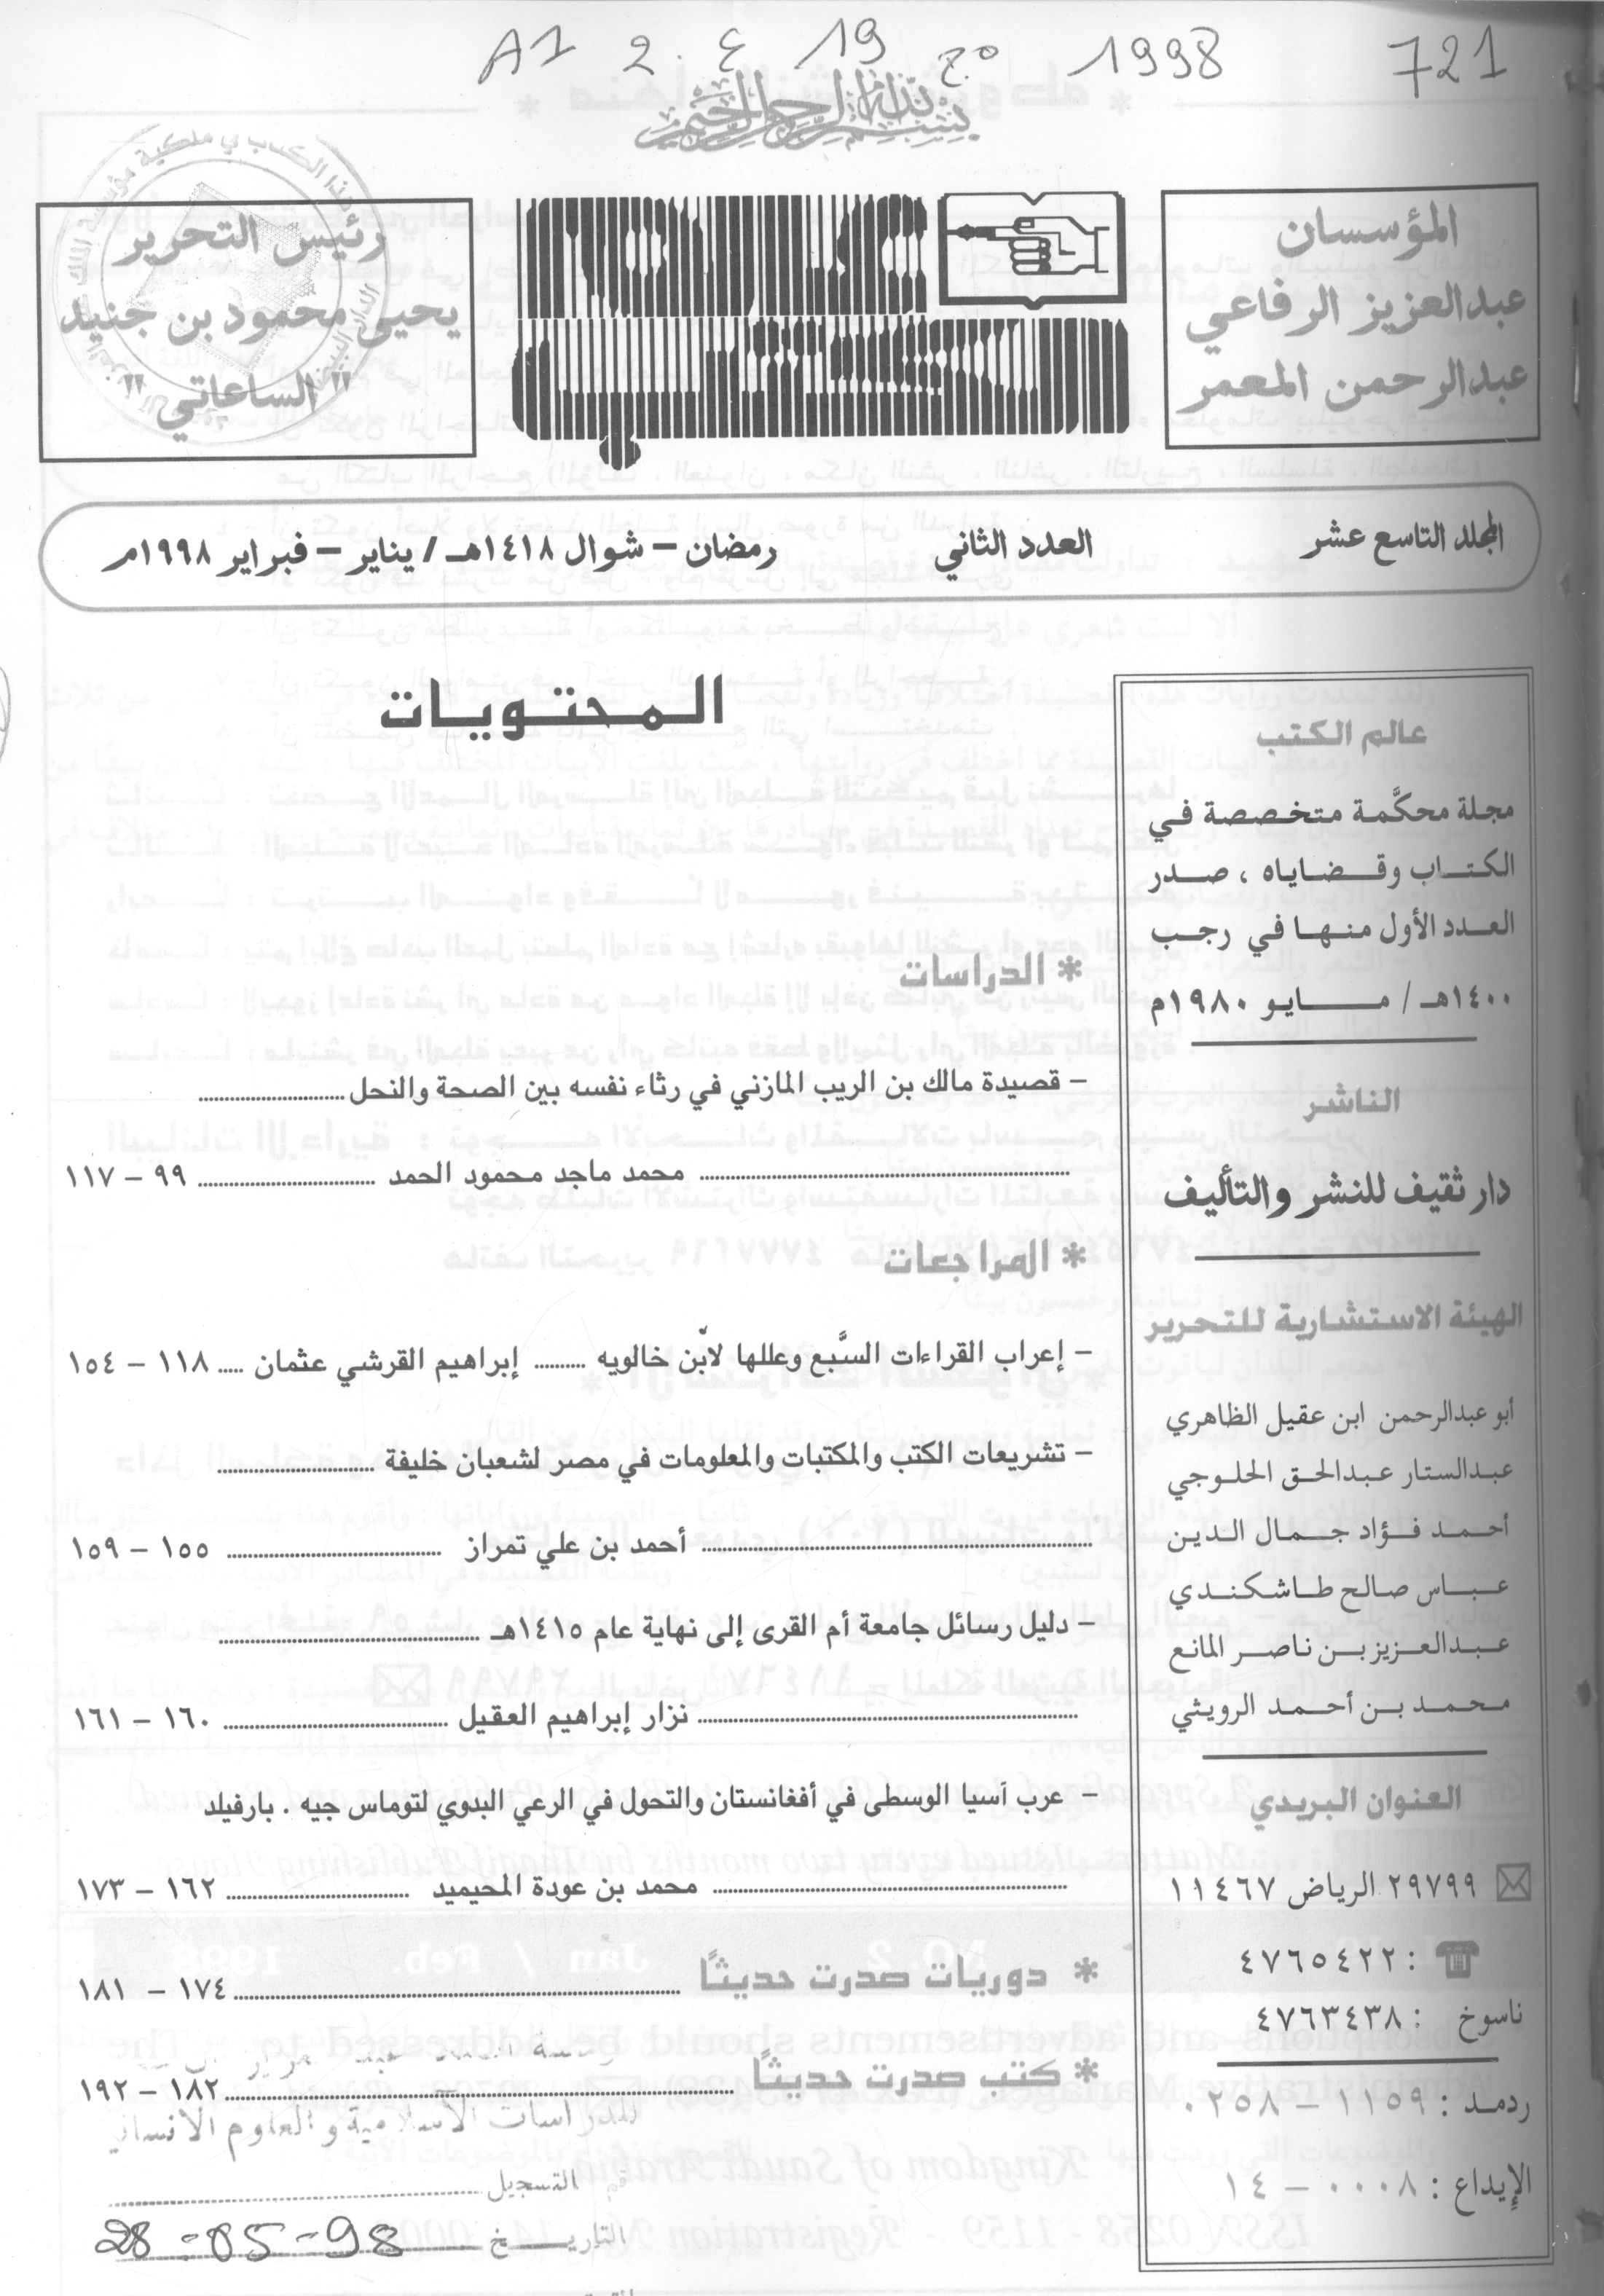 A1 2 .ع 19 مج 1998 721
بسم الله الرحمن الرحيم
المؤسسان
عبدالعزيز الرفاعي
عبدالرحمن المعمر
عالم الكتب
رئيس التحرير
يحيى محمود بن جنيد
" الساعاتي "
المجلد التاسع عشر العدد الثاني رمضان – شوال ١٤١٨هـ / يناير – فبراير ١٩٩٨م
عالم الكتب
مجلة محكَّمة متخصصة في
الكتاب وقضاياه ، صدر
العدد الأول منها في رجب
١٤٠٠هـ / مايو ١٩٨٠م
الناشر
دار ثقيف للنشر والتأليف
الهيئة الاستشارية للتحرير
أبو عبدالرحمن ابن عقيل الظاهري
عبدالستار عبدالحق الحلوجي
أحمد فؤاد جمال الدين
عباس صالح طاشكندي
عبدالعزيز بن ناصر المانع
محمد بن أحمد الرويثي
العنوان البريدي
٢٩٧٩٩ الرياض ١١٤٦٧
: ٤٧٦٥٤٢٢
ناسوخ : ٤٧٦٣٤٣٨
ردمد : ١١٥٩ – ٠٢٥٨
الإيداع : ٠٠٠٨ – ١٤
المحتويات
* الدراسات
– قصيدة مالك بن الريب المازني في رثاء نفسه بين الصحة والنحل ..........
.......... محمد ماجد محمود الحمد .......... ٩٩ – ١١٧
* المراجعات
– إعراب القراءات السَّبع وعللها لابن خالويه .......... إبراهيم القرشي عثمان ..... ١١٨ – ١٥٤
– تشريعات الكتب والمكتبات والمعلومات في مصر لشعبان خليفة ..........
.......... أحمد بن علي تمراز .......... ١٥٥ – ١٥٩
– دليل رسائل جامعة أم القرى إلى نهاية عام ١٤١٥هـ ..........
.......... نزار إبراهيم العقيل .......... ١٦٠ – ١٦١
– عرب آسيا الوسطى في أفغانستان والتحول في الرعي البدوي لتوماس جيه . بارفيلد
.......... محمد بن عودة المحيميد .......... ١٦٢ – ١٧٣
* دوريات صدرت حديثًا .......... ١٧٤ – ١٨١
* كتب صدرت حديثًا .......... ١٨٢ – ١٩٢
للدراسات الاسلامية و العلوم الانسانية
التسجيل ..........
التاريخ 28-05-98